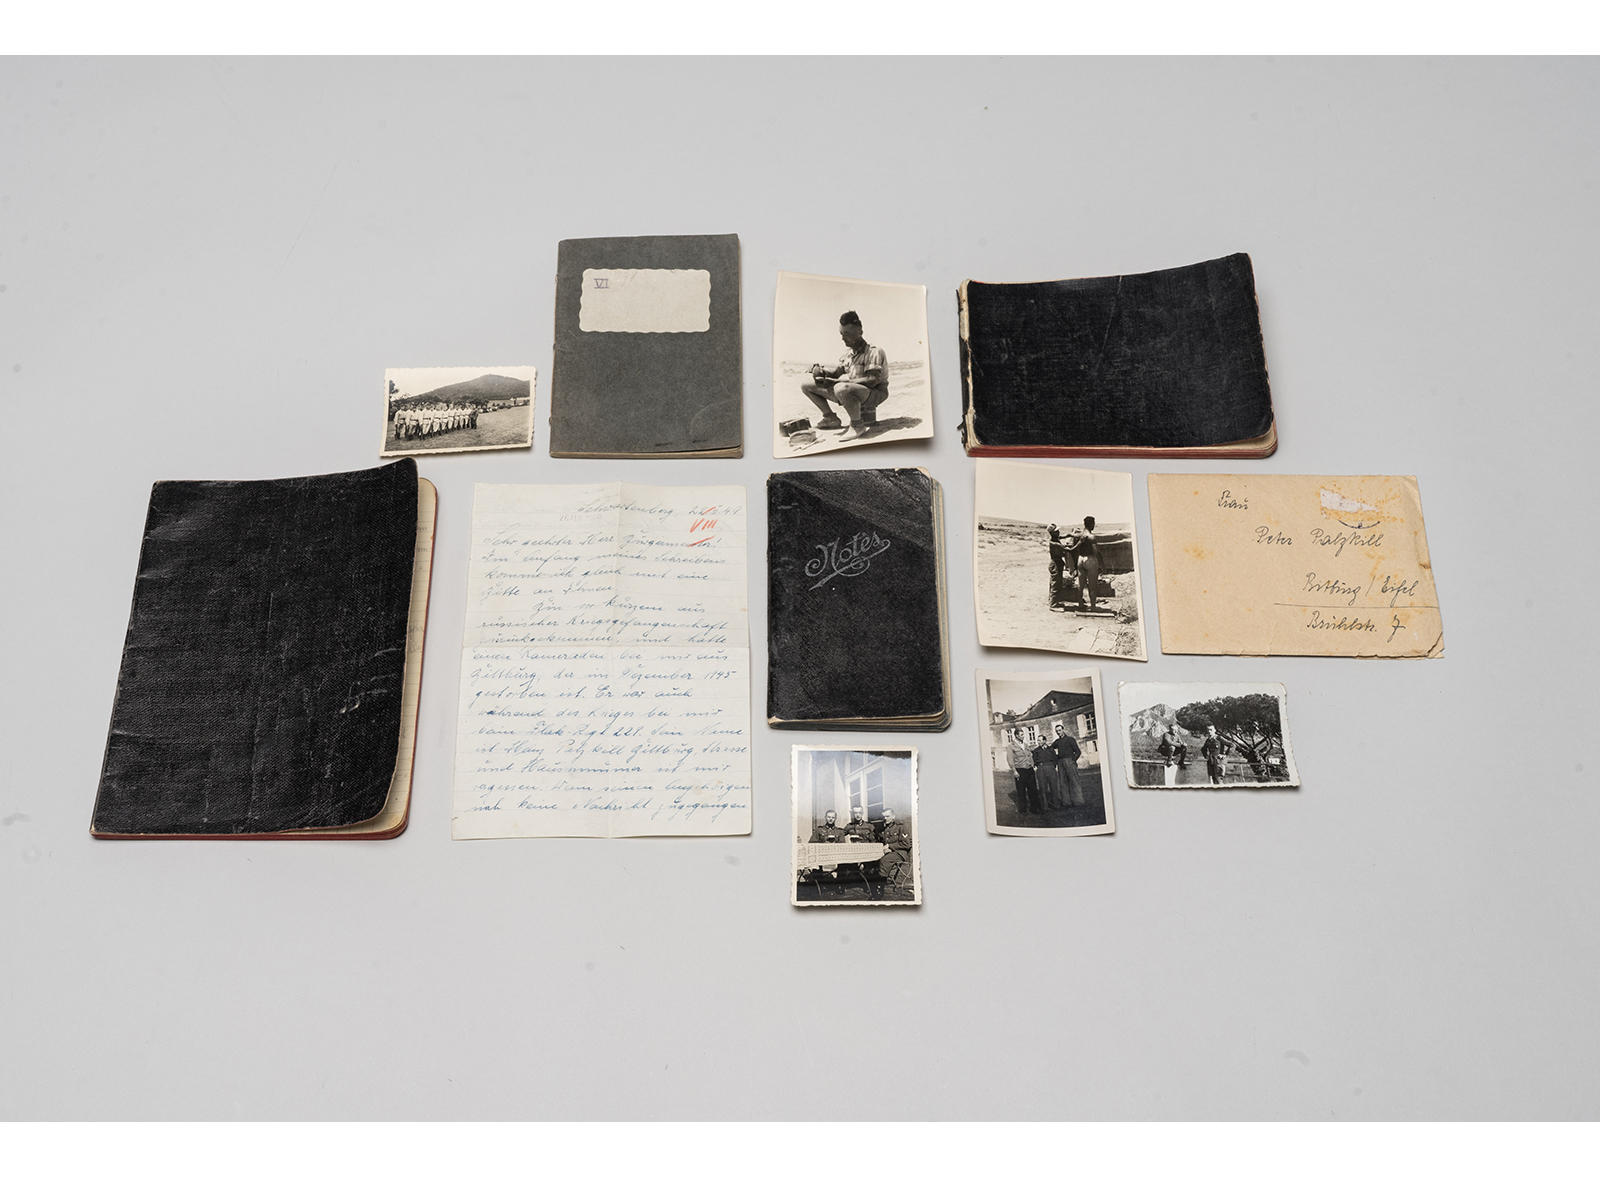 VI
Schwartenberg, 49
VIII
Sehr geehrter Herr Bürgermeister!
Am Anfang meines Schreibens
komme ich gleich mit eine
Bitte an Ihnen.
Bin vor Kurzem aus
russischer Kriegsgefangenschaft
zurückgekommen, und hatte
einen Kameraden bei mir aus
Bittburg, der im Dezember 1945
gestorben ist. Er war auch
während des Krieges bei mir
beim Flak-Rgt 229. Sein Name
ist Hans Patzkill Bittburg, Strasse
und Hausnummer ist mir
Wenn seinen Angehörigen
noch keine Nachricht zugegangen
Notes
Frau
Peter Palzkill
Bitburg / Eifel
Brühlstr. 7